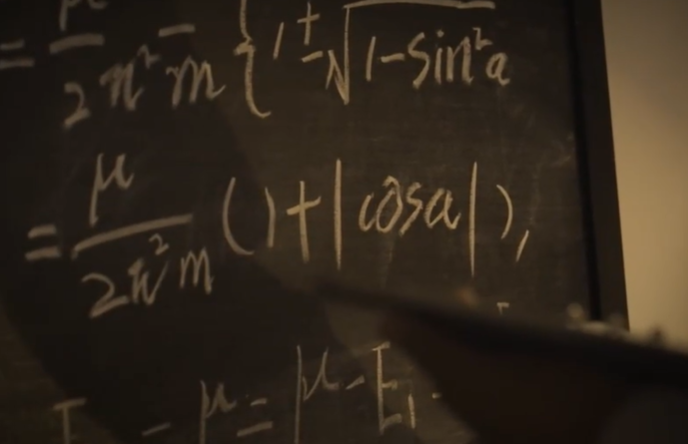 = μ / 2π² m { 1 ± √1-sin²a
= μ / 2π² m (1 + |cosa|),
E - μ = |μ - E₁ -